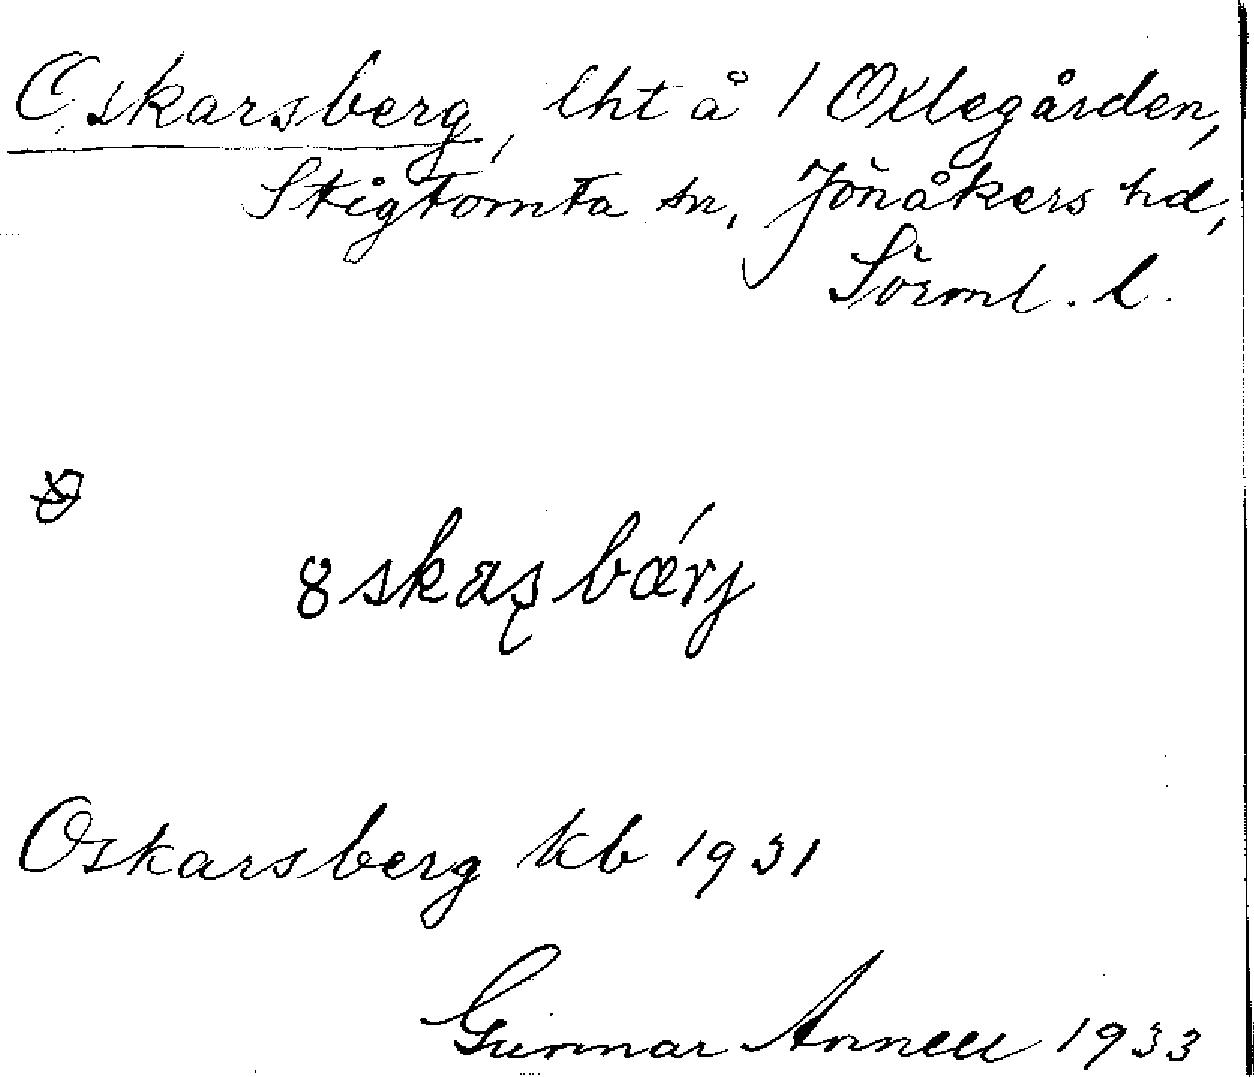 Oskarsberg, lht å 1 Oxlegården,
Stigtomta sn, Jönåkers hd,
Sörml. l.
8skaʂbǽrj
Oskarsberg kb 1931
Gunnar Annell 1933